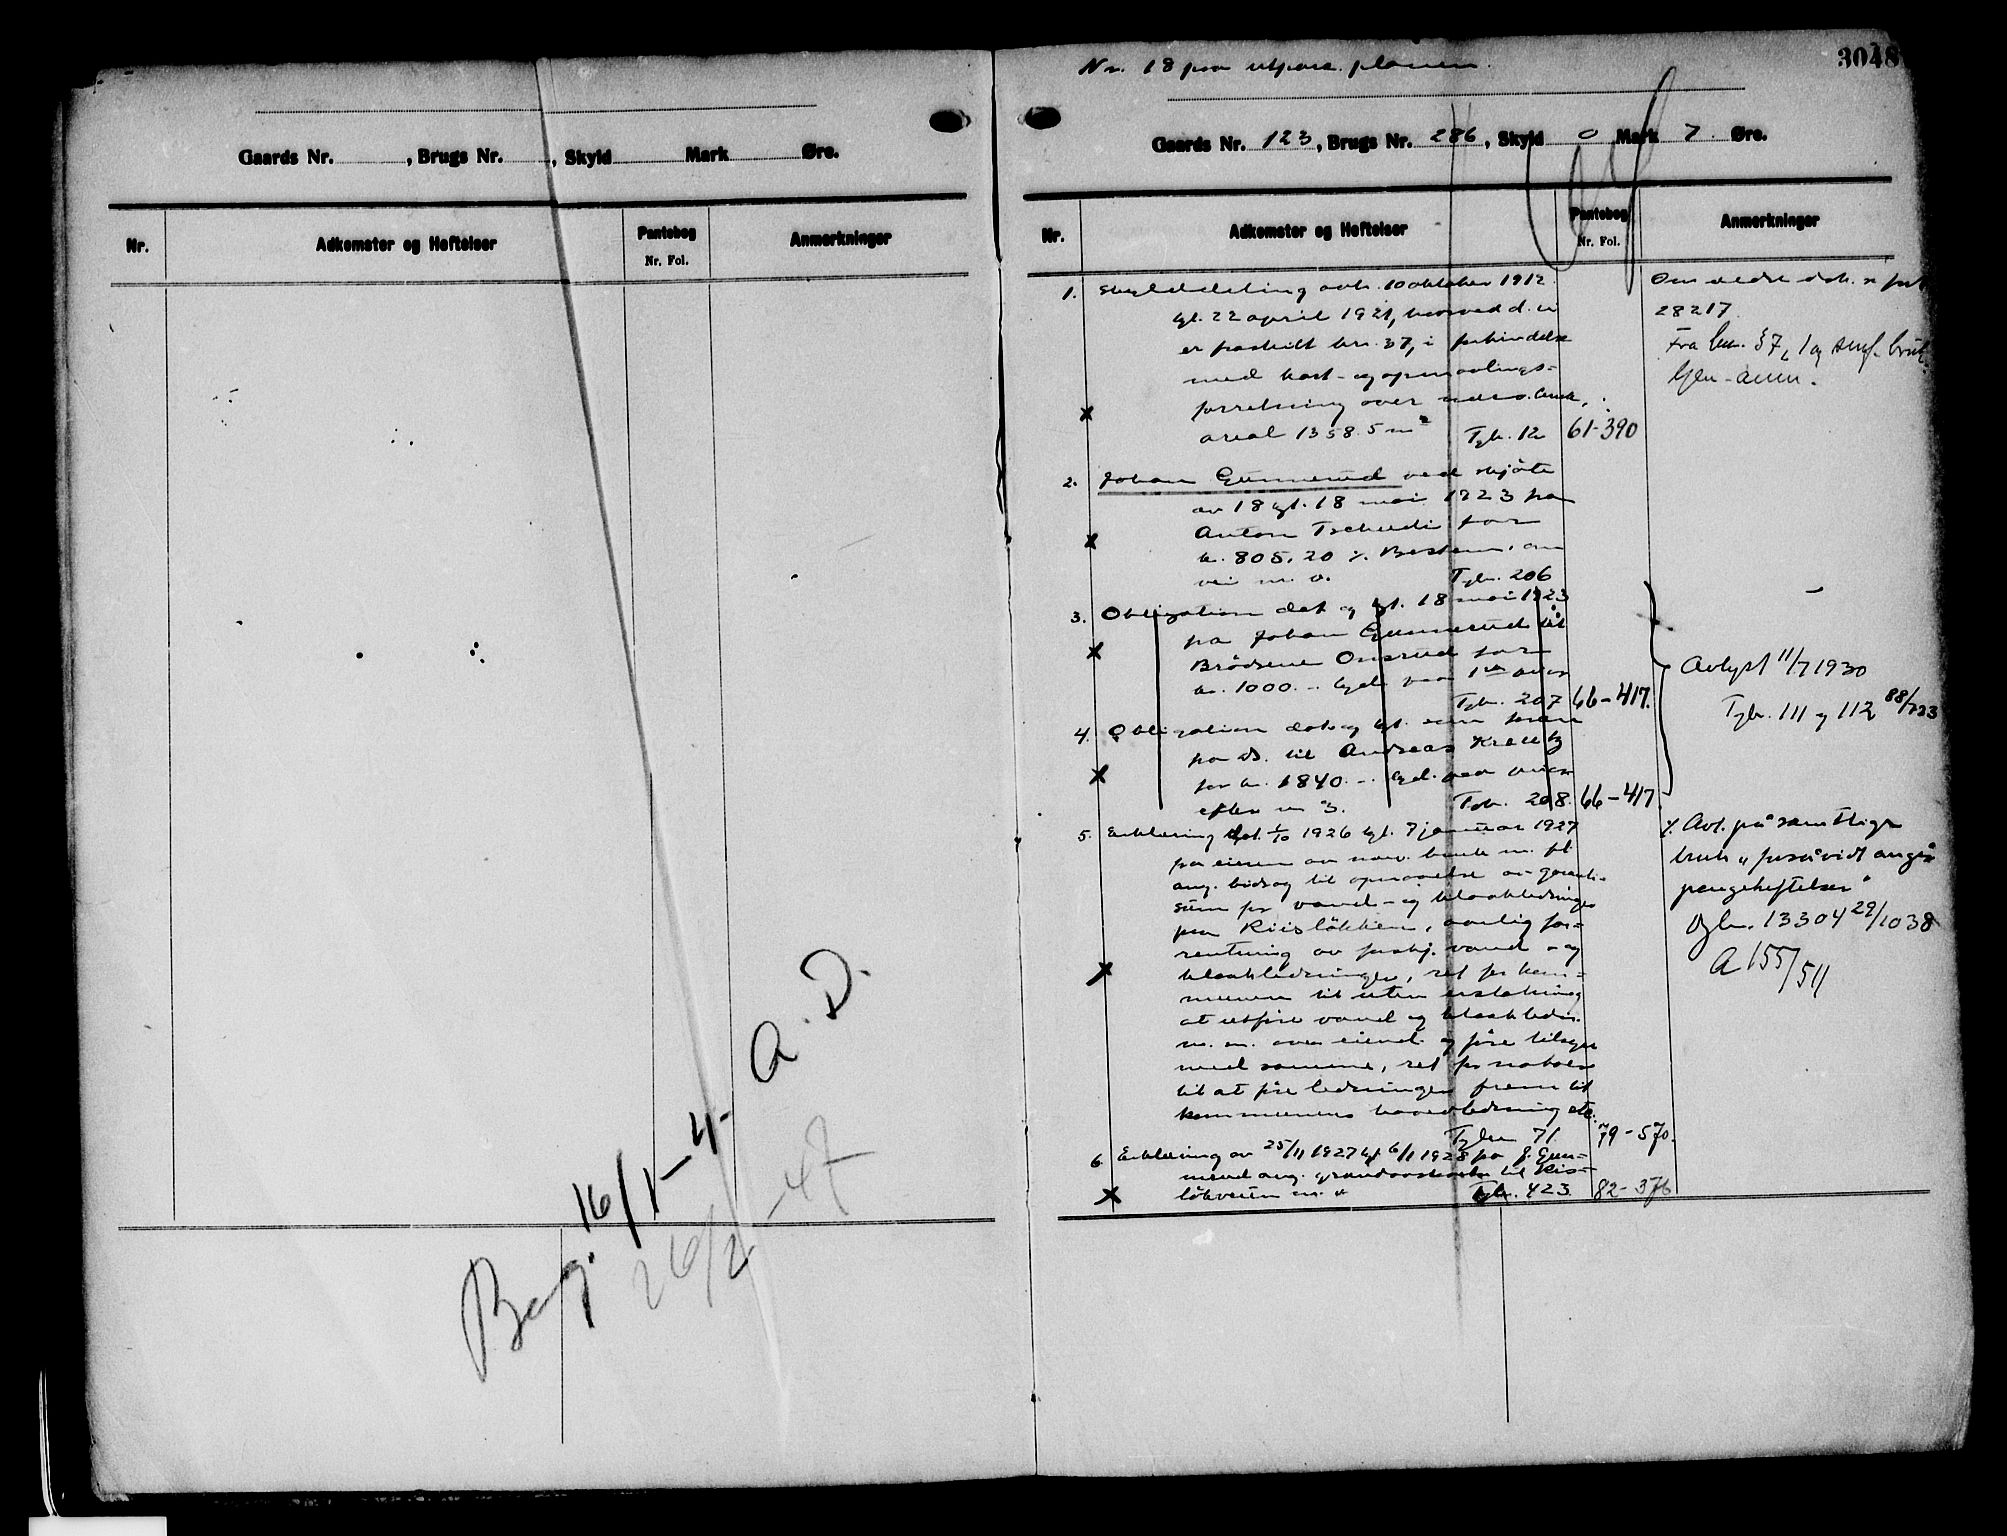 Gaards Nr. , Brugs Nr. , Skyld Mark Øre.
Nr.
Adkomster og Heftelser
Pantebog
Nr. Fol.
Anmerkninger
A. D.
Berg. 16/1-4-
26/2 -47
3048
Nr. 18 paa utparc. planen.
Gaards Nr. 123, Brugs Nr. 286, Skyld 0 Mark 7 Øre.
Nr.
Adkomster og Heftelser
Pantebog
Nr. Fol.
Anmerkninger
1. Skylddeling avh. 10 oktober 1912
tgl. 22 april 1921, hvorved d. ei
er fraskilt brn. 37, i forbindelse
med kart- og opmaalings-
forretning over nærv. bruk,
areal 1358.5 m² Tgb. 12 61-390
Om ældre dok. se fol
28217.
Fra brn. 37, 1 og saml. bruk.
2. Johan Gunnerud ved skjøte
av 18 tgl. 18 mai 1923 fra
Anton Tschudi for
kr. 805,20 %. Bestem. om
vei m. v. Tgb. 206
3. Obligation dat og tgl. 18 mai 1923
fra Johan Gunnerud til
Brødrene Onsrud for
kr. 1000.- tgd. paa 1ste
Tgb. 207 66-417.
4. Obligation dat og tgl. som foran
fra ds. til Andreas
for kr. 1840.-
efter nr 3. Tgb. 208. 66-417.
Avlyst 11/7 1930
Tgb. 111 og 112 88/223
5. Erklæring dat. 1/10 1926 tgl. 7 januar 1927
fra eieren av nærv. bruk m. fl.
ang. bidrag til opnaaelse av garanti-
sum for vand- og kloakledninger
paa Riisløkken, aarlig for-
rentning av forskj. vand- og
kloakledninger, ret for kom-
munen til uten erstatning
at utføre vand og kloakledn.
m. m. over eiend. og føre tilsyn
med samme, ret for naboer
til at føre ledninger frem til
kommunens hovedledning etc.
Tgb. 71. 79-570.
%. Avl. på samtlige
bruk "forsåvidt angår
pengeheftelser"
Dgb. 13304 29/10 38
A 155/511
6. Erklæring av 25/11 1927 tgl. 6/1 1928 fra J. Gun-
nerud ang. grundavstaaelse til Ris-
løkveien m. v. Tgb. 423. 82-376